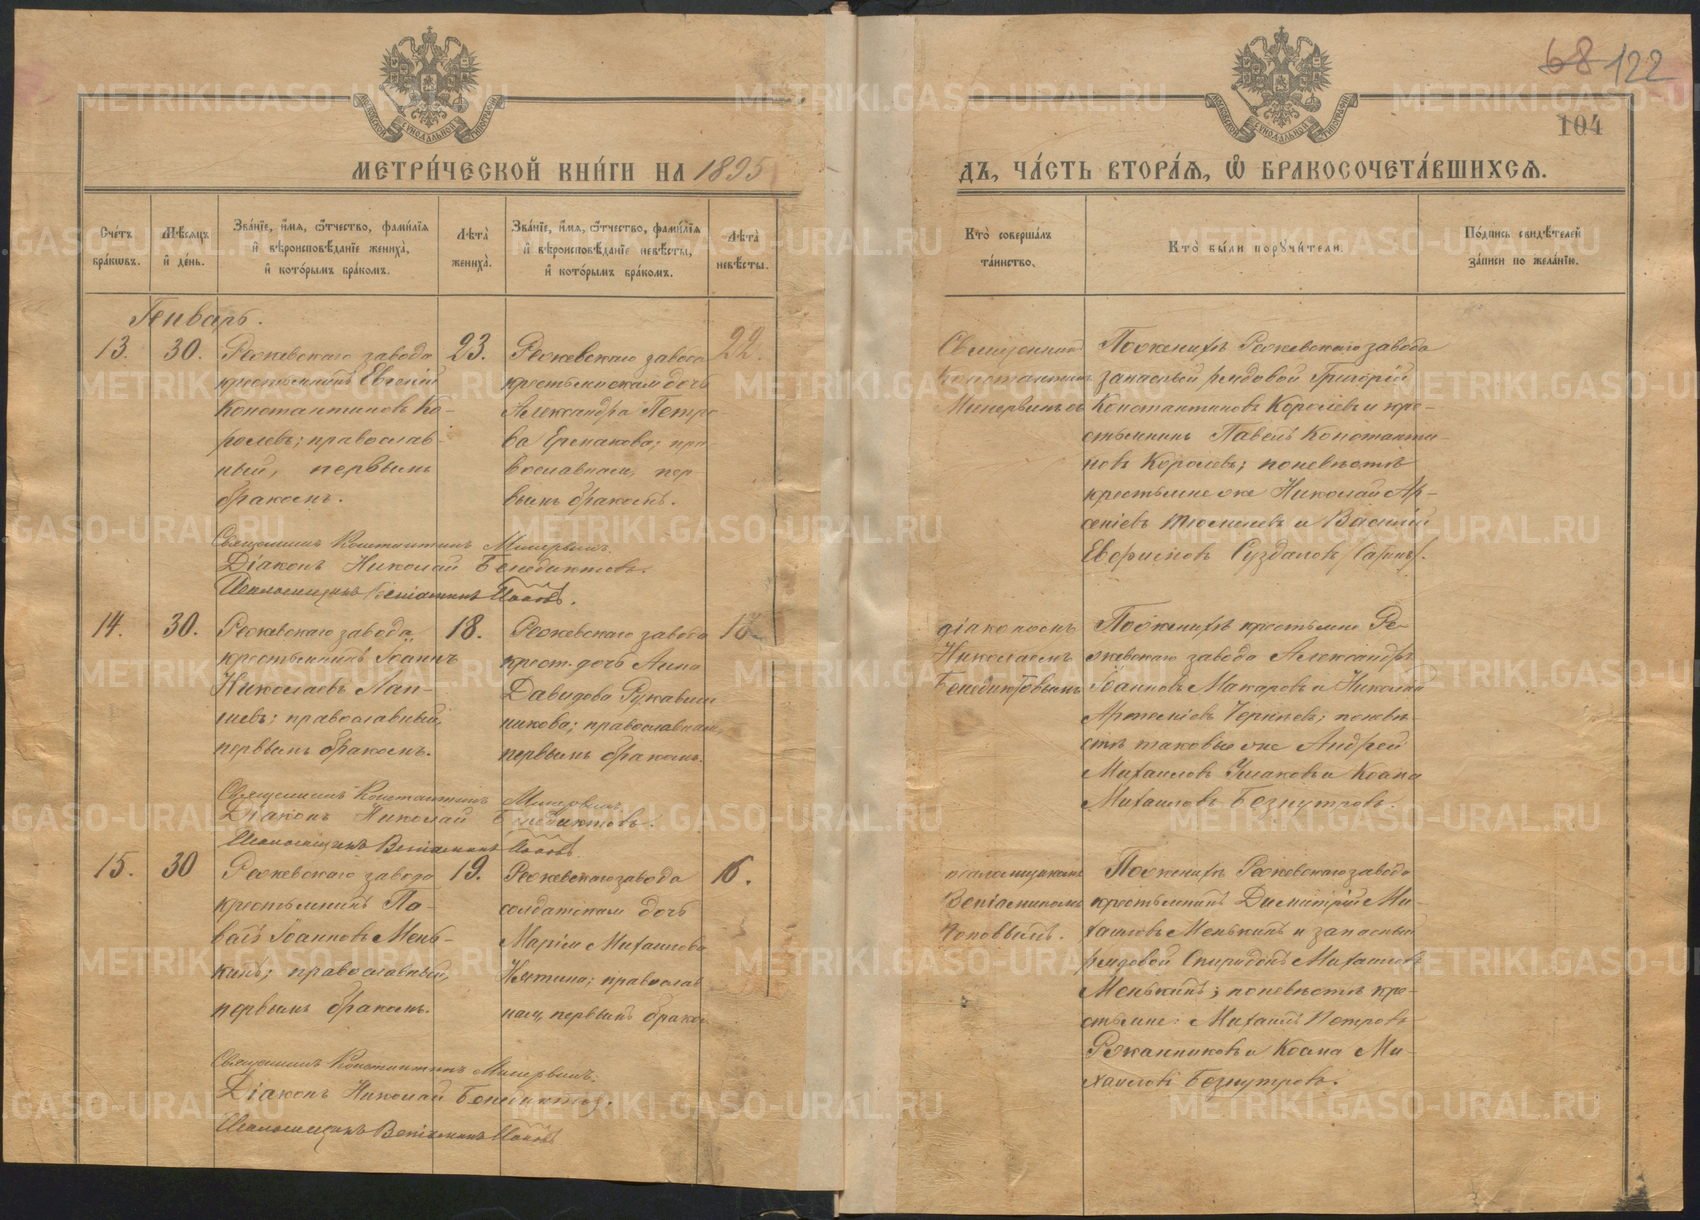 68 122
104
МЕТРИ́ЧЕСКОЙ КНИ́ГИ НА 1895
ДЪ, ЧА́СТЬ ВТОРА́Я, Ѡ БРАКОСОЧЕТА́ВШИХСЯ.
Сче́тъ бра́кѡвъ.
Мѣ́сяцъ и҆ де́нь.
Зва́нїе, и҆́мя, ѻ҆́тчество, фами́лїя и҆ вѣроисповѣ́данїе жениха̀, и҆ кото́рымъ бра́комъ.
Лѣта̀ жениха̀.
Зва́нїе, и҆́мя, ѻ҆́тчество, фами́лїя и҆ вѣроисповѣ́данїе невѣ́сты, и҆ кото́рымъ бра́комъ.
Лѣта̀ невѣ́сты.
Кто̀ соверша́лъ та́инство.
Кто̀ бы́ли порꙋчи́тели.
По́дпись свидѣ́телей за́писи по жела́нїю.
Генварь.
13.
30.
Режевскаго завода
крестьянинъ Евгенiй
Константиновъ Ко-
ролевъ; православ-
ный, первымъ
бракомъ.
23.
Режевскаго завода
крестьянская дочь
Александра Петро
ва Ермакова; пра-
вославная, пер
вымъ бракомъ.
22.
Священник
Константин
Минервинъ
По женихѣ Режевскаго завода
запасный рядовой Григорiй
Константиновъ Королевъ и кре-
стьянинъ Павелъ Константи-
новъ Королевъ; по невѣстѣ
крестьяне же Николай Ар-
сенiевъ и Василiй
Суздаловъ
Священникъ Константинъ Минервинъ.
Дiаконъ Николай Бенедиктовъ.
Псаломщикъ Венiаминъ Поповъ.
14.
30.
Режевскаго завода
крестьянинъ Iоаннъ
Николаевъ Лап-
тевъ; православный,
первымъ бракомъ.
18.
Режевскаго завода
крест. дочь Анна
Давидова Рукавиш
никова; православная,
первымъ бракомъ.
дiакономъ
Николаемъ
Бенедиктовымъ
По женихѣ крестьяне Ре-
жевскаго завода Александръ
Iоанновъ Макаровъ и Николай
Артемiевъ Черновъ; по невѣ-
стѣ таковые же Андрей
Михаиловъ Ушаковъ и Козма
Михаиловъ Безпутровъ.
Священникъ Константинъ Минервинъ.
Дiаконъ Николай Бенедиктовъ.
Псаломщикъ Венiаминъ Поповъ
15.
30
Режевскаго завода
крестьянинъ Па-
велъ Iоанновъ Мень-
кинъ; православный,
первымъ бракомъ.
19.
Режевскаго завода
солдатская дочь
Марiя Михаилова
православ
ная, первымъ брако
псаломщикомъ
Венiаминомъ
Поповымъ.
По женихѣ Режевскаго завода
крестьянинъ Димитрiй Ми-
хаиловъ Менькинъ и запасный
рядовой Спиридонъ Михаиловъ
Менькинъ; по невѣстѣ кре-
стьяне: Михаилъ Петровъ
Режанниковъ и Козма Ми-
хаиловъ Безпутровъ.
Священникъ Константинъ Минервинъ.
Дiаконъ Николай Бенедиктовъ.
Псаломщикъ Венiаминъ Поповъ
METRIKI.GASO-URAL.RU